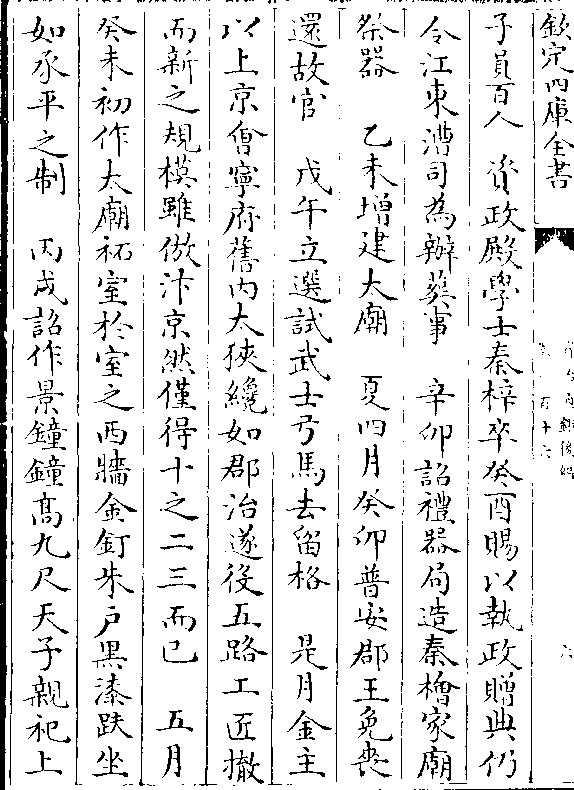 欽定四庫全書
子員百人　資政殿學士秦梓卒癸酉賜以執政贈典仍
令江東漕司為辦葬事　辛卯詔禮器局造秦檜家廟
祭器　乙未增建太廟　夏四月癸卯普安郡王免喪
還故官　戊午立選試武士弓馬去留格　是月金主
以上京會寧府舊内大狹纔如郡治遂役五路工匠撤
而新之規模雖倣汴京然僅得十之二三而已　五月
癸未初作太廟祏室於室之西牆金釘朱户黒漆趺坐
如承平之制　丙戌詔作景鐘鐘髙九尺天子親祀上